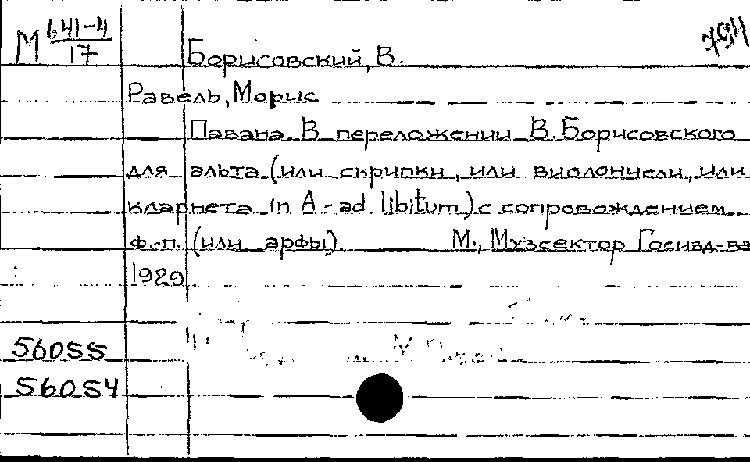 М 641-4
17
Борисовский, В.
Равель, Морис
Павана. В переложении В. Борисовского
для альта (или скрипки, или виолончели, или
кларнета in A - ad libitum) с сопровождением
ф.-п. (или арфы). М., Музсектор Госизд-ва
1929
56055
56054